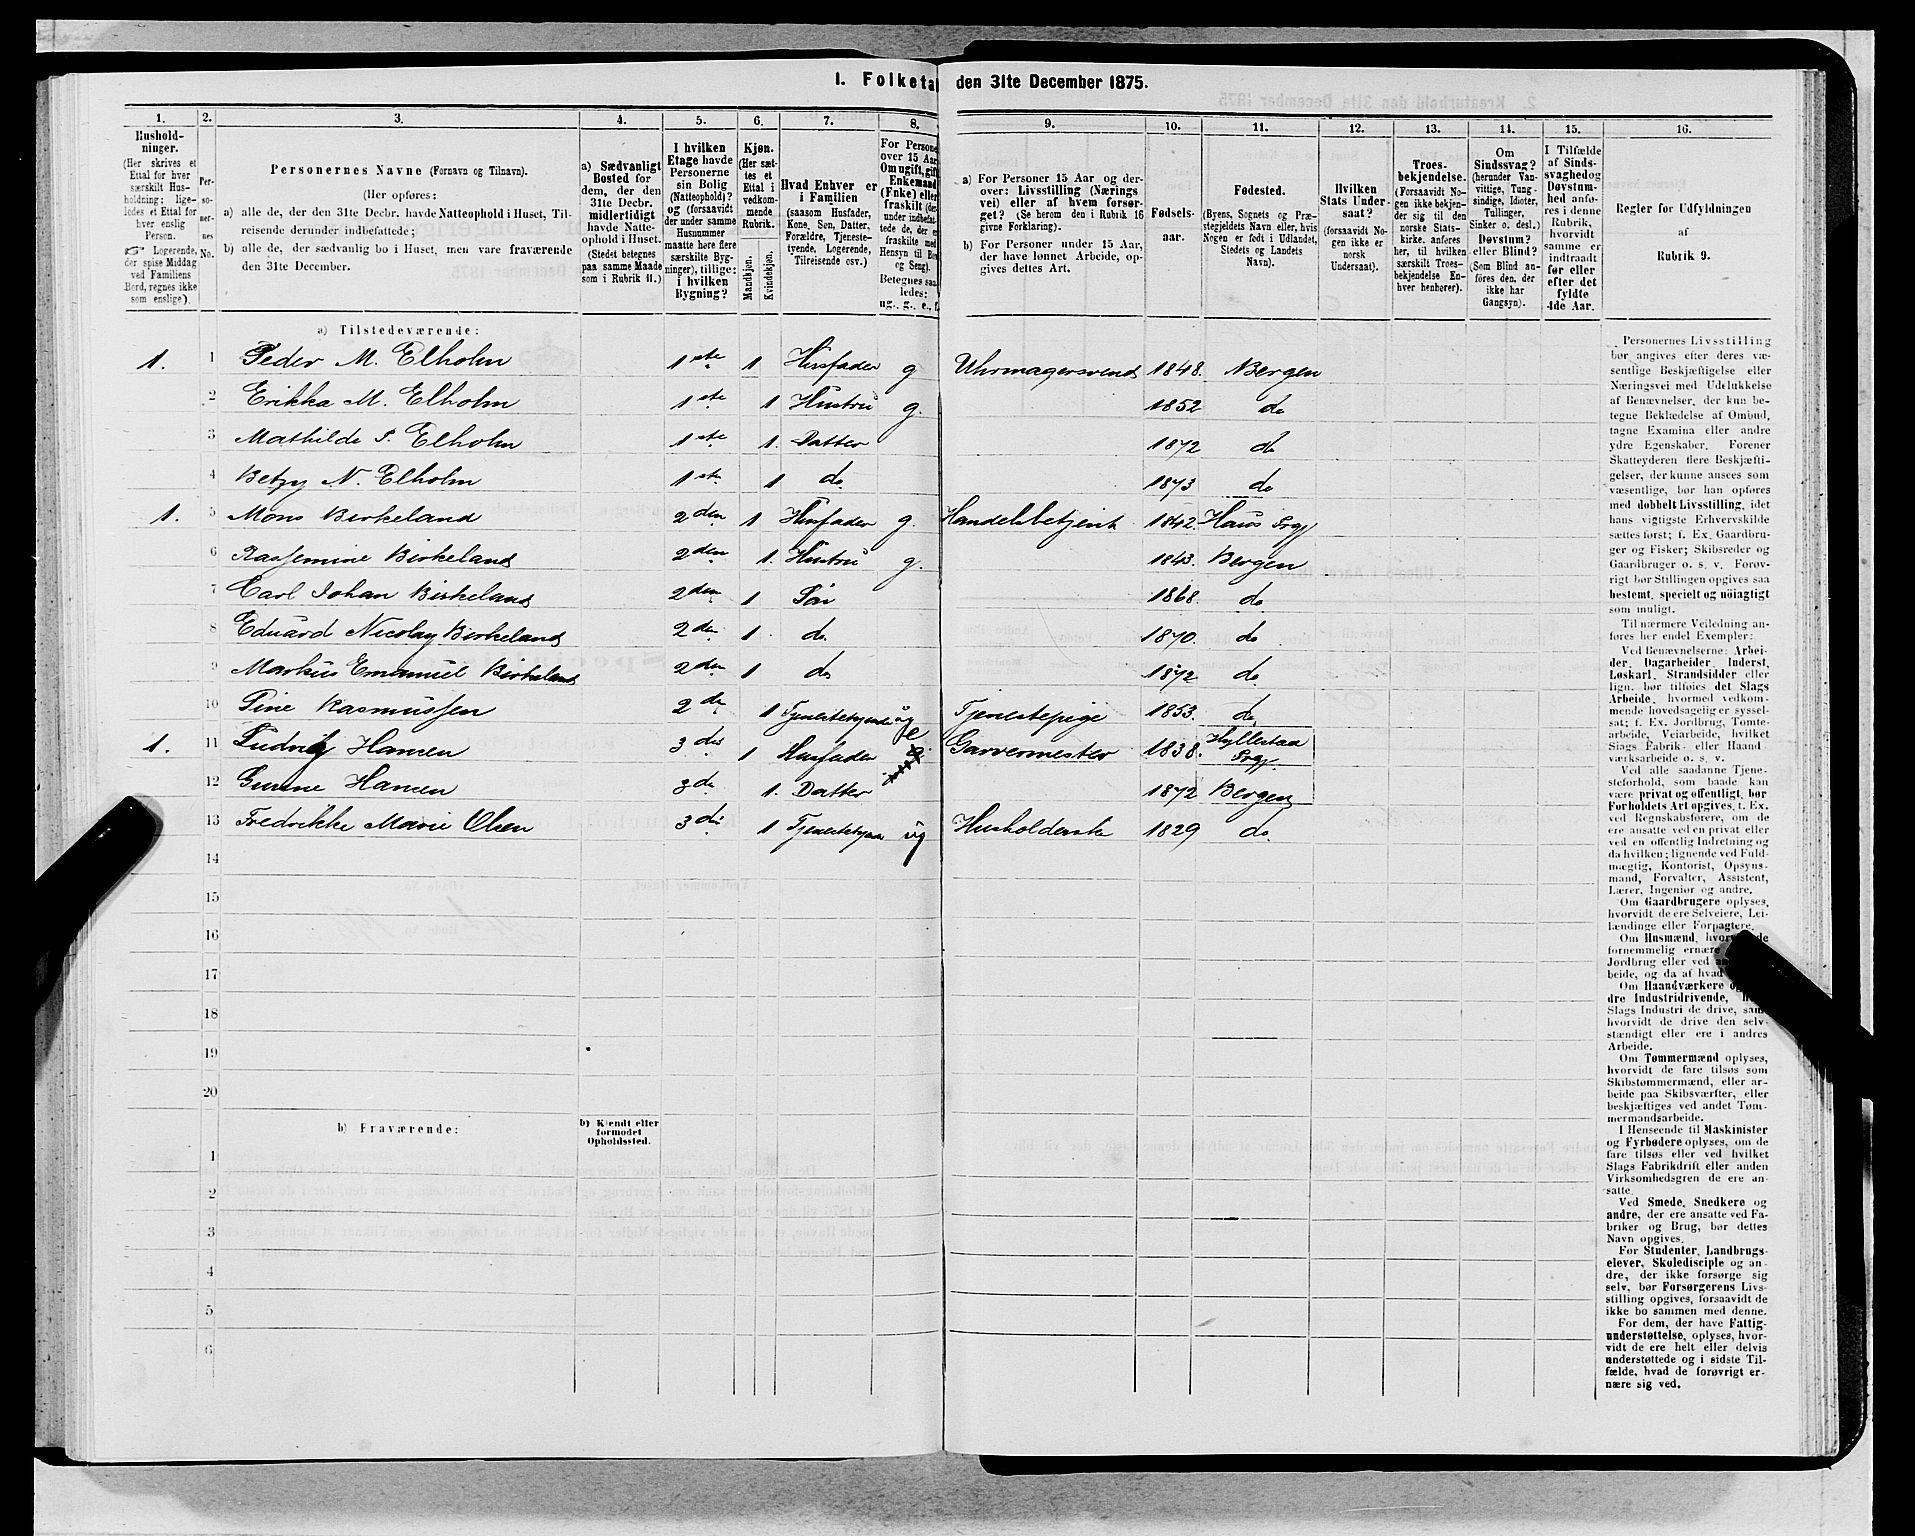 I. Folketæ den 31te December 1875.
1. 2. 3. 4. 5. 6. 7. 8. 9. 10. 11. 12. 13. 14. 15. 16.
Hushold-
ninger.
(Her skrives et
Ettal for hver
særskilt Hus-
holdning; lige-
ledes et Ettal for
hver enslig
Person.
Logerende,
der spise Middag
ved Familiens
Bord, regnes ikke
som enslige).
Per-
so-
ner-
nes
No.
Personernes Navne (Fornavn og Tilnavn).
(Her opføres:
a) alle de, der den 31te Decbr. havde Natteophold i Huset, Til-
reisende derunder indbefattede;
b) alle de, der sædvanlig bo i Huset, men vare fraværende
den 31te December.
a) Sædvanligt
Bosted for
dem, der den
31te Decbr.
midlertidigt
havde Natte-
ophold i Huset.
(Stedet betegnes
paa samme Maade
som i Rubrik 11.)
I hvilken
Etage havde
Personerne
sin Bolig
(Natteophold)?
og (forsaavidt
der under samme
Husnummer
maatte høre flere
særskilte Byg-
ninger), tillige:
i hvilken
Bygning?
Kjøn.
(Her sæt-
tes et
Ettal i
vedkom-
mende
Rubrik.
Mandkjøn.
Kvindekjøn.
Hvad Enhver er
i Familien
(saasom Husfader,
Kone, Søn, Datter,
Forældre, Tjeneste-
tyende, Logerende,
Tilreisende osv.)
For Persone
over 15 Aar
Om ugift, gift
Enkemand
(Enke) eller
fraskilt (der
under indbefat-
tede de, der er
fraskilte med
Hensyn til Bo
og Seng).
Betegnes saa
ledes:
ug., g., e., f.
a) For Personer 15 Aar og der-
over: Livsstilling (Nærings
vei) eller af hvem forsør-
get? (Se herom den i Rubrik 16
givne Forklaring).
b) For Personer under 15 Aar,
der have lønnet Arbeide, op-
gives dettes Art.
Fødsels-
aar.
Fødested.
(Byens, Sognets og Præ-
stegjeldets Navn eller, hvis
Nogen er født i Udlandet,
Stedets og Landets
Navn).
Hvilken
Stats Under-
saat?
(forsaavidt No-
gen ikke er
norsk
Undersaat).
Troes-
bekjendelse.
(Forsaavidt No-
gen ikke bekjen-
der sig til den
norske Stats-
kirke, anføres
her, til hvilken
særskilt Troes-
bekjendelse En-
hver henhører).
Om
Sindssvag?
(herunder Van-
vittige, Tung-
sindige, Idioter,
Tullinger,
Sinker o. desl.)
Døvstum?
eller Blind?
(Som Blind an-
føres den, der
ikke har
Gangsyn).
I Tilfælde
af Sinds-
svaghed og
Døvstum-
hed anfø-
res i denne
Rubrik,
hvorvidt
samme er
indtraadt
før eller
efter det
fyldte
4de Aar.
Regler for Udfyldningen
af
Rubrik 9.
a) Tilstedeværende:
1. 1 Peder M. Elholm 1ste 1 Husfader g Uhrmagersvend 1848. Bergen
2 Erikka M. Elholm 1ste 1 Hustru g. 1852 do
3 Mathilde P. Elholm 1ste 1. Datter 1872 do
4 Betzy N. Elholm 1ste 1 do. 1873 do
1. 5 Mons Birkeland 2den 1 Husfader g. Handelsbetjent 1842. Haus Prgj
6 Rassemine Birkeland 2den 1. Hustru g. 1843. Bergen
7 Carl Johan Birkeland 2den 1 Søn 1868. do
8 Eduard Nicolay Birkeland 2den 1 do. 1870. do.
9 Markus Emanuel Birkeland 2den 1 do 1872 do.
10 Sine Rasmussen 2de 1 Tjenestetyende ug Tjenestepige 1853. do,
1. 11 Ludvig Hansen 3die 1 Husfader e Garvermester 1838. Hyllestad Prgj.
12 Gurine Hansen 3de 1. Datter 1872 Bergen
13 Fredrikke Marie Olsen 3di 1 Tjenestetyen ug Husholderske 1829 do.
14
15
16
17
18
19
20
b) Fraværende:
b) Kjendt eller
formodet
Opholdssted.
1
2
3
4
5
6
Personernes Livsstilling
bør angives efter deres væ-
sentlige Beskjæftigelse eller
Næringsvei med Udelukkelse
af Benævnelser, der kun be-
tegne Beklædelse af Ombud,
tagne Examina eller andre
ydre Egenskaber. Forener
Skatteyderen flere Beskjæfti-
gelser, der kunne ansees som
væsentlige, bør han opføres
med dobbelt Livsstilling, idet
hans vigtigste Erhvervskilde
sættes først; f. Ex. Gaardbru-
ger og Fisker; Skibsreder og
Gaardbruger o. s. v. Forøv-
rigt bør Stillingen opgives saa
bestemt, specielt og nöiagtigt
som muligt.
Til nærmere Veiledning an-
føres her endel Exempler:
Ved Benævnelserne: Arbei-
der, Dagarbeider, Inderst,
Løskarl, Strandsidder eller
lign. bør tilføies det Slags
Arbeide, hvormed vedkom-
mende hovedsagelig er syssel-
sat; f. Ex. Jordbrug, Tomte-
arbeide, Veiarbeide, hvilket
Slags Fabrik- eller Haand
værksarbeide o. s. v.
Ved alle saadanne Tjene-
steforhold, som baade kan
være privat og offentligt, bør
Forholdets Art opgives, t. Ex.
ved Regnskabsførere, om de
ere ansatte ved en privat eller
ved en offentlig Indretning og
da hvilken; lignende ved Fuld-
mægtig, Kontorist, Opsyns-
mand, Forvalter, Assistent,
Lærer, Ingeniør og andre.
Om Gaardbrugere oplyses,
hvorvidt de ere Selveiere, Lei-
lændinge eller Forpagtere.
Om Husmænd,
fornemmelig ernære
Jordbrug eller ved
beide, og da af hvad
Om Haandværkere
dre Industridrivende,
Slags Industri de drive, sam
hvorvidt de drive den selv-
stændigt eller ere i andres
Arbeide.
Om Tømmermænd oplyses,
hvorvidt de fare tilsøs som
Skibstømmermænd, eller ar-
beide paa Skibsværfter, eller
beskjæftiges ved andet Tøm-
mermandsarbeide.
I Henseende til Maskinister
og Fyrbødere oplyses, om de
fare tilsøs eller ved hvilket
Slags Fabrikdrift eller anden
Virksomhedsgren de ere an-
satte.
Ved Smede, Snedkere og
andre, der ere ansatte ved Fa-
briker og Brug, bør dettes
Navn opgives.
For Studenter, Landbrugs-
elever, Skoledisciple og an-
dre, der ikke forsørge sig
selv, bør Forsørgerens Livs-
stilling opgives, forsaavidt de
ikke bo sammen med denne.
For dem, der have Fattig-
understøttelse, oplyses, hvor-
vidt de ere helt eller delvis
understøttede og i sidste Til-
fælde, hvad de forøvrigt er-
nære sig ved.